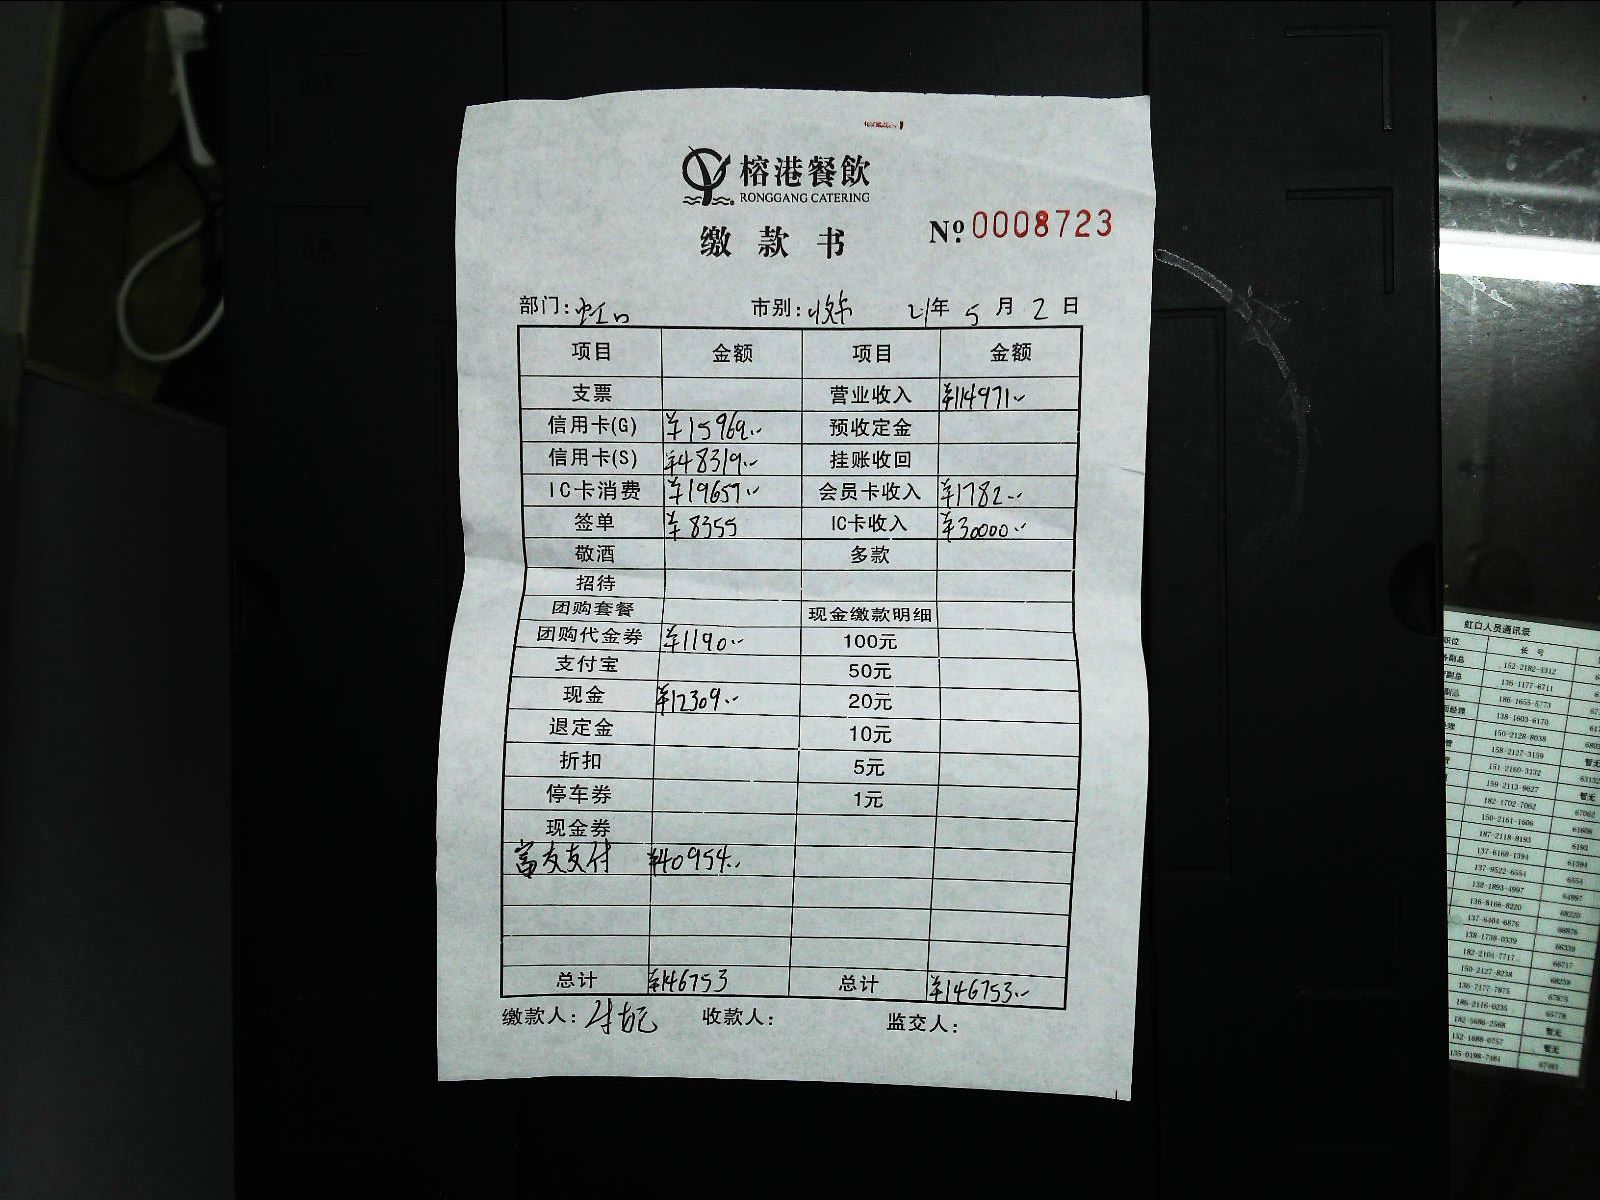 榕港餐飲
RONGGANG CATERING
缴款书
Nº 0008723
部门: 虹口 市别: 收 21年 5月 2日
项目 金额 项目 金额
支票 营业收入 ¥114971.-
信用卡(G) ¥15969.- 预收定金
信用卡(S) ¥48319.- 挂账收回
IC卡消费 ¥19657.- 会员卡收入 ¥1782.-
签单 ¥8355 IC卡收入 ¥30000.-
敬酒 多款
招待
团购套餐 现金缴款明细
团购代金券 ¥1190.- 100元
支付宝 50元
现金 ¥12309.- 20元
退定金 10元
折扣 5元
停车券 1元
现金券
富友支付 ¥40954.-
总计 ¥146753 总计 ¥146753.-
缴款人: 收款人: 监交人:
虹口人员通讯录
职位 长号
副总 152-2182-4312
副总 136-1177-6711
副总 186-1655-5773
经理 138-1603-6170
150-2128-8038
158-2127-3159 暂无
151-2160-3132 63132
159-2113-9627 暂无
182-1702-7062 67062
150-2161-1606 61606
187-2118-8193 6193
137-6168-1394 61394
137-9522-6554 6554
132-1893-4997 64997
136-8166-8220 68220
137-6404-6876 66876
138-1738-0339
182-2104-7717 66717
150-2127-8238 68238
136-7177-7875 67875
186-2116-0235
182-5686-2568 暂无
152-1688-0757 暂无
135-0198-7461 67461